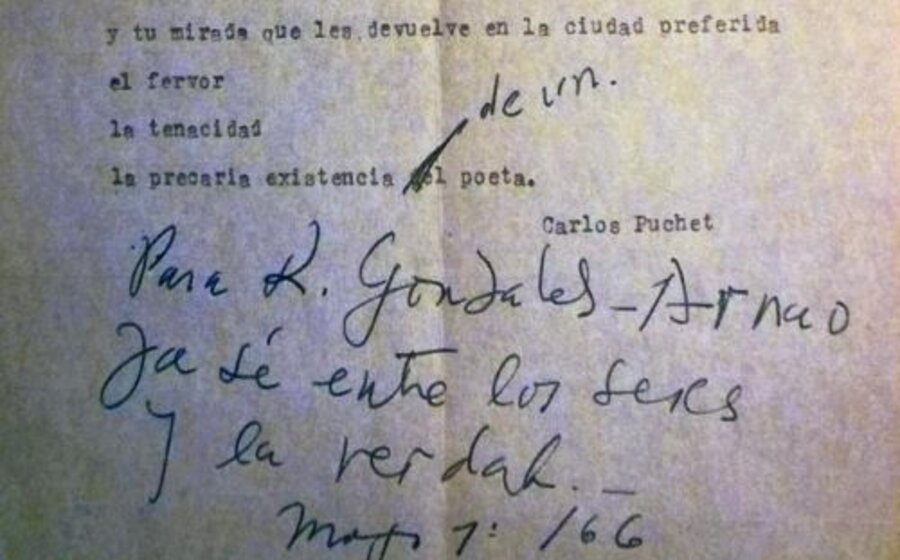 y tu mirada que les devuelve en la ciudad preferida
el fervor
de un.
la tenacidad
la precaria existencia del poeta.
Carlos Puchet
Para R. Gonzales-Arnao
Ya sé entre los seres
y la verdad._
Mayo 7: /66